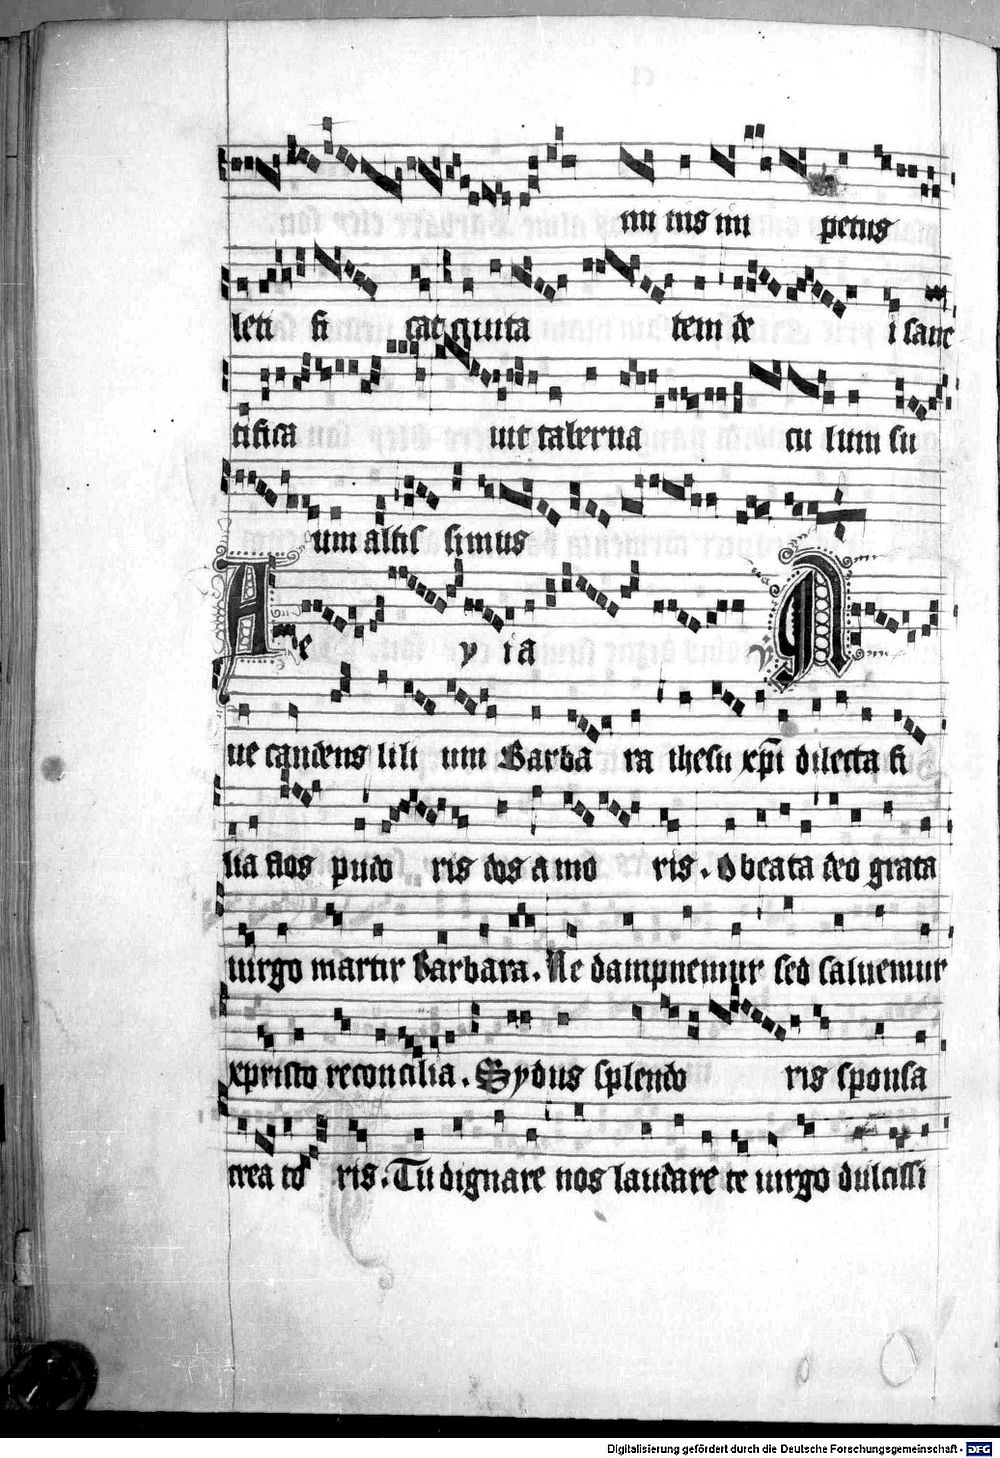 mi nis im petus
leti fi cat ciuita tem de i sanc
tifica uit taberna cu lum su
um altis simus
A e v ia A
ue candens lili um Barba ra ihesu xp̄i dilecta fi
lia flos pudo ris dos amo ris. O beata deo grata
uirgo martir Barbara. Ne dampnemur sed saluemur
xpristo reconcilia. Sydus splendo ris sponsa
crea to ris. Tu dignare nos laudare te uirgo dulcissi
Digitalisierung gefördert durch die Deutsche Forschungsgemeinschaft - DFG